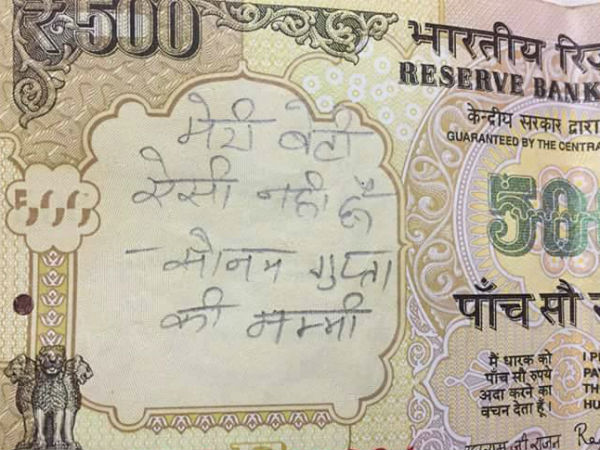 ₹500
भारतीय रिज
RESERVE BANK
केन्द्रीय सरकार द्वारा
GUARANTEED BY THE CENTRA
मेरी बेटी
ऐसी नहीं हैं
- सोनम गुप्ता
की मम्मी
500
पाँच सौ
मैं धारक को
पाँच सौ रुपये
अदा करने का
वचन देता हूँ।
I P
PAY
TH
HU